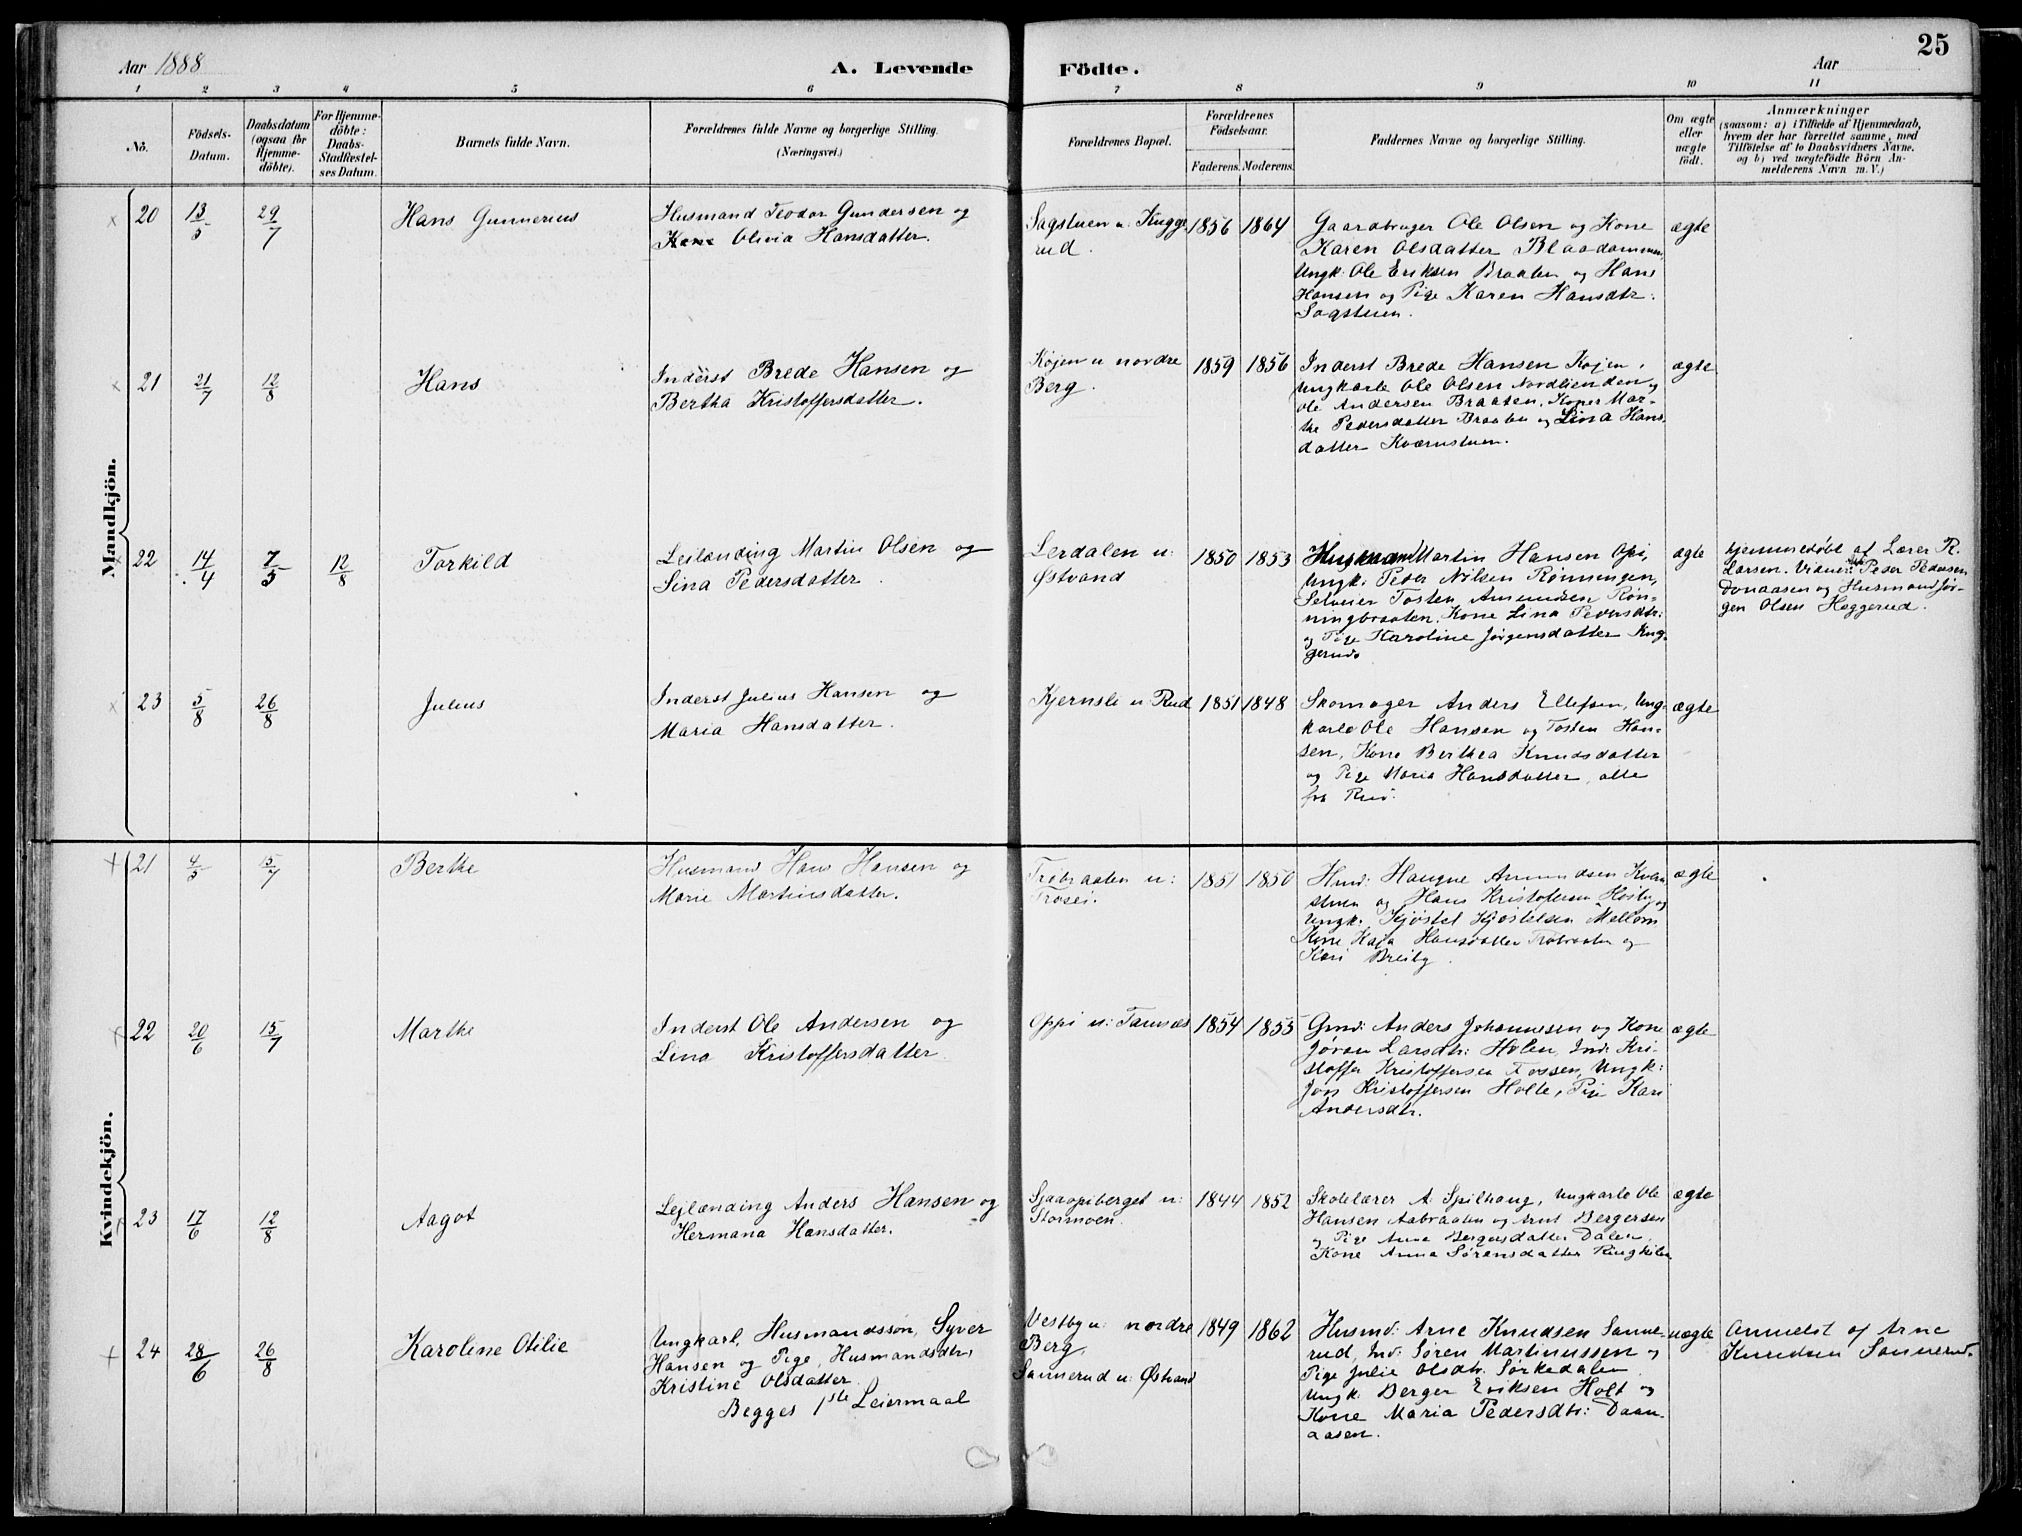 25
Aar 1888
A. Levende
Födte.
Aar
1 2 3 4 5 6 7 8 9 10 11
No.
Födsels-
Datum.
Daabsdatum
(ogsaa for
Hjemme-
döbte).
For Hjemme-
döbte:
Daabs-
Stadfæstel-
ses Datum.
Barnets fulde Navn.
Forældrenes fulde Navne og borgerlige Stilling.
(Næringsvei.)
Forældrenes Bopæl.
Forældrenes
Födselsaar.
Faderens. Moderens.
Faddernes Navne og borgerlige Stilling.
Om ægte
eller
uægte
födt.
Anmærkninger
(saasom: a) i Tilfælde af Hjemmedaab,
hvem der har forrettet samme, med
Tilföielse af to Daabsvidners Navne.
og b) ved uægtefödte Börn An-
melderens Navn m. V.)
Mandkjön.
20
13/5
29/7
Hans Gunnerius
Husmand Teodor Gundersen og
Kone Olivia Hansdatter.
Sagstuen u: Kugge
rud.
1856 1864
Gaardbruger Ole Olsen og Kone
Karen Olsdatter Blaadammen,
Ungk: Ole Eriksen Braaten og Hans
Hansen og Pige Karen Hansdtr:
Sagstuen.
ægte
21
21/7
12/8
Hans
Inderst Brede Hansen og
Bertha Kristoffersdatter.
Kojen u nordre
Berg.
1859 1856
Inderst Brede Hansen Kojen,
Ungkarle Ole Olsen Nordlienden og
Ole Andersen Braaten, Koner Mar-
the Pedersdatter Braaten og Lina Hans
datter Kværnstuen.
ægte
22
14/4
7/5
12/8
Torkild
Leilænding Martin Olsen og
Lina Pedersdatter.
Lerdalen u:
Østvand
1850 1853
Martin Hansen Opi,
Ungk: Peder Nilsen Rønningen,
Selveier Tosten Amundsen Røn-
ningbraaten, Kone Lina Pedersdtr:
og Pige Karoline Jørgensdatter Kug-
gerud.
ægte
hjemmedøbt af Lærer R.
Larsen. Vidner: Peder Pedersen
Donaasen og Husmand Jør-
gen Olsen Heggerud.
23
5/8
26/8
Julius
Inderst Julius Hansen og
Maria Hansdatter.
Kjernsli u: Rud
1851 1848
Skomager Anders Ellefsen, Ung-
karle Ole Hansen og Tosten Han-
sen, Kone Berthea Knudsdatter
og Pige Maria Hansdatter, alle
fra Rud.
ægte
Kvindekjön.
21
4/5
15/7
Berthe
Husmand Hans Hansen og
Marie Martinsdatter.
Trobraaten u:
Trosei.
1851 1850
Husd: Haugne Amundsen Kværn
stuen og Hans Kristoffersen Høiby og
Ungk: Kjøstel Kjøstelsen Mellom
Kone Kaja Hansdatter Trobraaten og
Kari Breiby
ægte
22
20/6
15/7
Marthe
Inderst Ole Andersen og
Lina Kristoffersdatter.
Oppi u: Taunæs
1854 1855
Gmd: Anders Johannesen og Kone
Jøran Larsdtr: Holen, Ind: Kri-
stoffer Kristoffersen Fossen, Ungk:
Jon Kristoffersen Holte, Pige Kari
Andersdtr.
ægte
23
17/6
12/8
Aagot
Lejlænding Anders Hansen og
Hermana Hansdatter.
Sjaaopiberget u:
Stormoen.
1844 1852
Skolelærer A: Spilhaug, Ungkarle Ole
Hansen Aabraaten og Arnt Bergersen
og Pige Anne Bergersdatter Dalen,
Kone Anna Sørensdatter Ringkilen
ægte
24
28/6
26/8
Karoline Otilie
Ungkarl, Husmandssøn, Syver
Hansen og Pige, Husmandsdtr:
Kristine Olsdatter.
Begges 1ste Leiermaal
Vestby u: nordre
Berg,
Sannerud u: Østvand
1849 1862
Husmd: Arne Knudsen Sanne-
rud, Ind: Søren Martinussen og
Pige Julie Olsdtr: Sørkedalen
Ungk: Berger Eriksen Holt og
Kone Maria Pedersdtr: Daan-
aasen.
uægte
Anmeldt af Arne
Knudsen Sannerud.